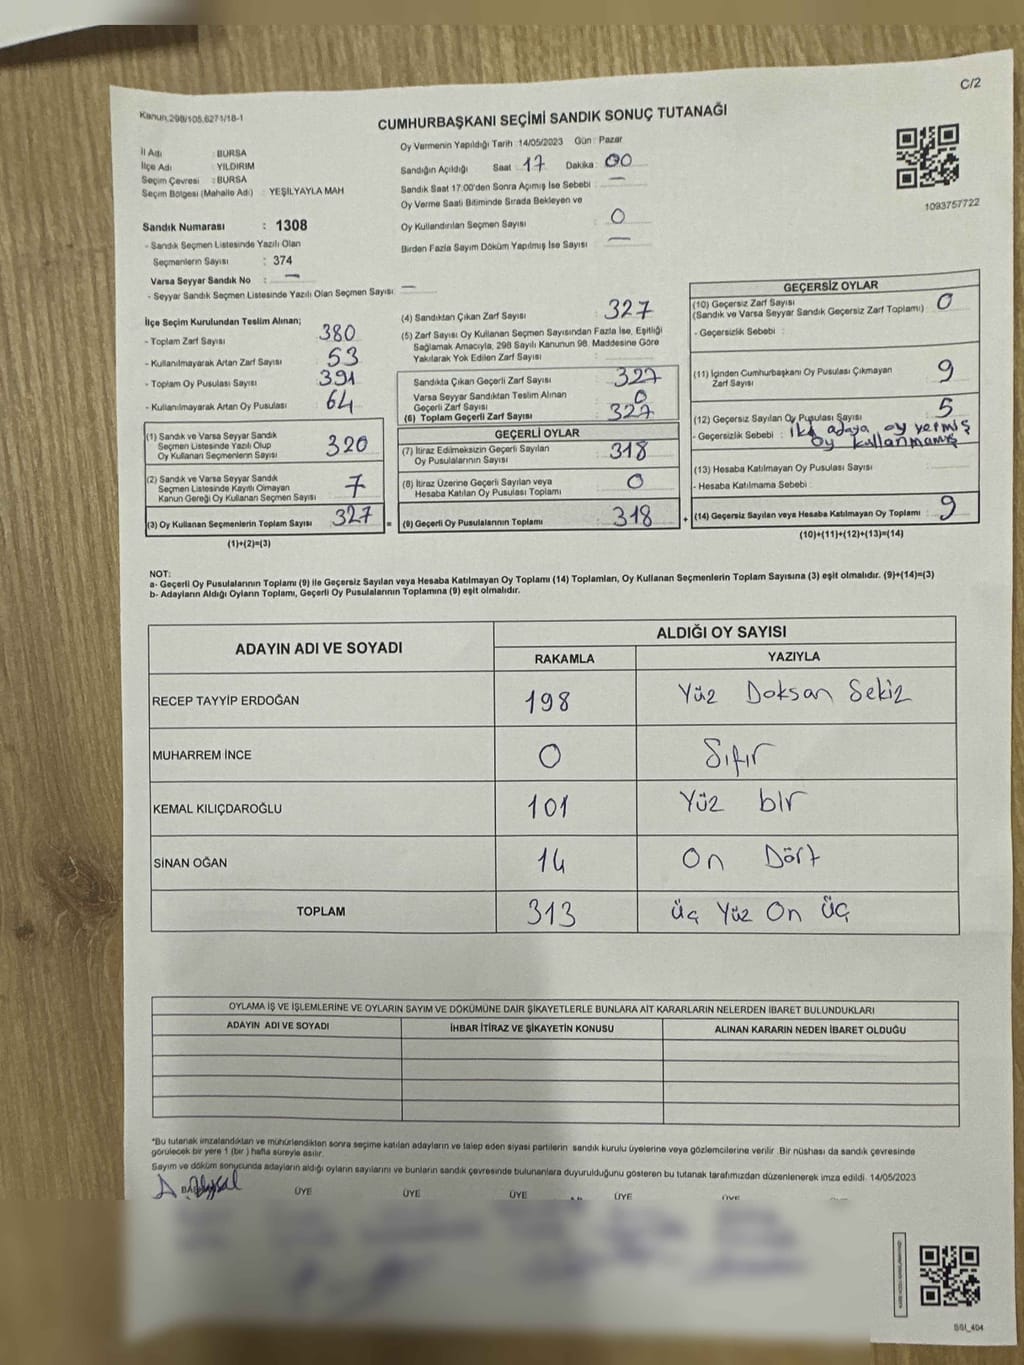 C/2
Kanun,298/105,6271/18-1
CUMHURBAŞKANI SEÇİMİ SANDIK SONUÇ TUTANAĞI
İl Adı : BURSA
İlçe Adı : YILDIRIM
Seçim Çevresi : BURSA
Seçim Bölgesi (Mahalle Adı) : YEŞİLYAYLA MAH
Oy Vermenin Yapıldığı Tarih :14/05/2023 Gün : Pazar
Sandığın Açıldığı Saat : 17 Dakika : 00
Sandık Saat 17:00'den Sonra Açımış İse Sebebi : —
Oy Verme Saati Bitiminde Sırada Bekleyen ve
Oy Kullandırılan Seçmen Sayısı : 0
Birden Fazla Sayım Döküm Yapılmış İse Sayısı : —
1093757722
Sandık Numarası : 1308
- Sandık Seçmen Listesinde Yazılı Olan
Seçmenlerin Sayısı : 374
Varsa Seyyar Sandık No : —
- Seyyar Sandık Seçmen Listesinde Yazılı Olan Seçmen Sayısı : —
İlçe Seçim Kurulundan Teslim Alınan;
- Toplam Zarf Sayısı : 380
- Kullanılmayarak Artan Zarf Sayısı : 53
- Toplam Oy Pusulası Sayısı : 391
- Kullanılmayarak Artan Oy Pusulası : 64
(1) Sandık ve Varsa Seyyar Sandık
Seçmen Listesinde Yazılı Olup
Oy Kullanan Seçmenlerin Sayısı : 320
(2) Sandık ve Varsa Seyyar Sandık
Seçmen Listesinde Kayıtlı Olmayan
Kanun Gereği Oy Kullanan Seçmen Sayısı : 7
(3) Oy Kullanan Seçmenlerin Toplam Sayısı : 327
(1)+(2)=(3)
(4) Sandıktan Çıkan Zarf Sayısı : 327
(5) Zarf Sayısı Oy Kullanan Seçmen Sayısından Fazla İse, Eşitliği
Sağlamak Amacıyla, 298 Sayılı Kanunun 98. Maddesine Göre
Yakılarak Yok Edilen Zarf Sayısı :
Sandıkta Çıkan Geçerli Zarf Sayısı : 327
Varsa Seyyar Sandıktan Teslim Alınan
Geçerli Zarf Sayısı : 0
(6) Toplam Geçerli Zarf Sayısı : 327
GEÇERLİ OYLAR
(7) İtiraz Edilmeksizin Geçerli Sayılan
Oy Pusulalarının Sayısı : 318
(8) İtiraz Üzerine Geçerli Sayılan veya
Hesaba Katılan Oy Pusulası Toplamı : 0
= (9) Geçerli Oy Pusulalarının Toplamı : 318
GEÇERSİZ OYLAR
(10) Geçersiz Zarf Sayısı : 0
(Sandık ve Varsa Seyyar Sandık Geçersiz Zarf Toplamı)
- Geçersizlik Sebebi :
(11) İçinden Cumhurbaşkanı Oy Pusulası Çıkmayan
Zarf Sayısı : 9
(12) Geçersiz Sayılan Oy Pusulası Sayısı : 5
- Geçersizlik Sebebi : iki adaya oy vermiş
oy kullanmamış
(13) Hesaba Katılmayan Oy Pusulası Sayısı :
- Hesaba Katılmama Sebebi :
+ (14) Geçersiz Sayılan veya Hesaba Katılmayan Oy Toplamı : 9
(10)+(11)+(12)+(13)=(14)
NOT:
a- Geçerli Oy Pusulalarının Toplamı (9) ile Geçersiz Sayılan veya Hesaba Katılmayan Oy Toplamı (14) Toplamları, Oy Kullanan Seçmenlerin Toplam Sayısına (3) eşit olmalıdır. (9)+(14)=(3)
b- Adayların Aldığı Oyların Toplamı, Geçerli Oy Pusulalarının Toplamına (9) eşit olmalıdır.
ADAYIN ADI VE SOYADI ALDIĞI OY SAYISI
RAKAMLA YAZIYLA
RECEP TAYYİP ERDOĞAN 198 Yüz Doksan Sekiz
MUHARREM İNCE 0 Sıfır
KEMAL KILIÇDAROĞLU 101 Yüz bir
SİNAN OĞAN 14 On Dört
TOPLAM 313 üç Yüz On üç
OYLAMA İŞ VE İŞLEMLERİNE VE OYLARIN SAYIM VE DÖKÜMÜNE DAİR ŞİKAYETLERLE BUNLARA AİT KARARLARIN NELERDEN İBARET BULUNDUKLARI
ADAYIN ADI VE SOYADI İHBAR İTİRAZ VE ŞİKAYETİN KONUSU ALINAN KARARIN NEDEN İBARET OLDUĞU
*Bu tutanak imzalandıktan ve mühürlendikten sonra seçime katılan adayların ve talep eden siyasi partilerin sandık kurulu üyelerine veya gözlemcilerine verilir .Bir nüshası da sandık çevresinde
görülecek bir yere 1 (bir ) hafta süreyle asılır.
Sayım ve döküm sonucunda adayların aldığı oyların sayılarını ve bunların sandık çevresinde bulunanlara duyurulduğunu gösteren bu tutanak tarafımızdan düzenlenerek imza edildi. 14/05/2023
ÜYE ÜYE ÜYE ÜYE ÜYE